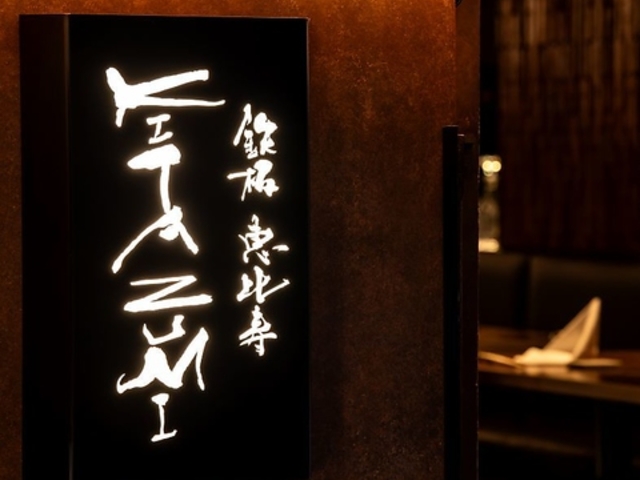 鉄板 恵比寿
KITAZUMI